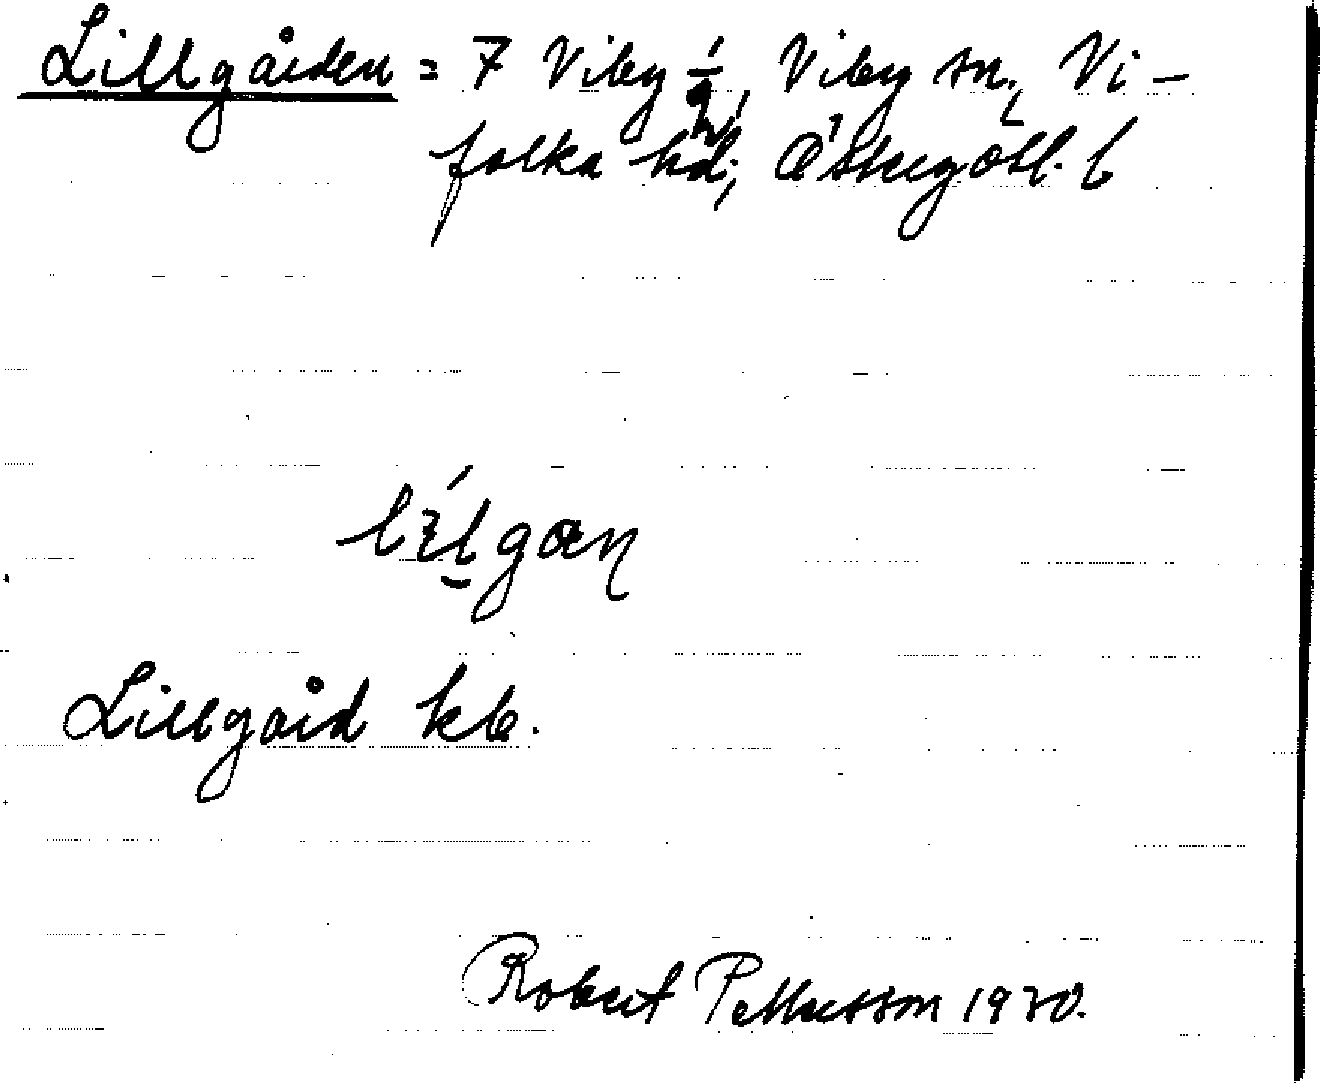 Lillgården = 7 Viby 1/2, Viby sn, Vi-
folka hd; Östergötl. l
Lillgård kb.
Robert Pettersson 1930.